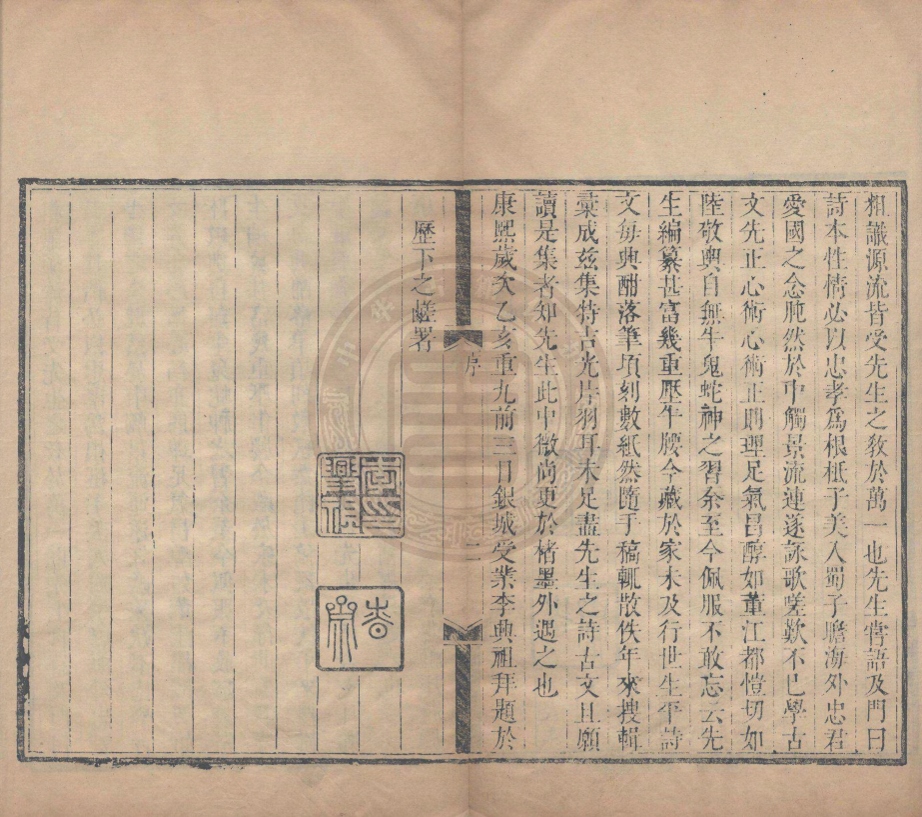 粗識源流皆受先生之敎於萬一也先生嘗語及門曰
詩本性情必以忠孝爲根柢子美入蜀子瞻海外忠君
愛國之念肫然於中觸景流連遂詠歌嗟歎不已學古
文先正心術心術正則理足氣昌醇如董江都愷切如
陸敬輿自無牛鬼蛇神之習余至今佩服不敢忘云先
生編纂甚富幾重壓牛腰今藏於家未及行世生平詩
文每興酣落筆頃刻數紙然隨手稿輒散佚年來搜輯
彚成兹集特吉光片羽耳未足盡先生之詩古文且願
讀是集者知先生此中微尚更於楮墨外遇之也
康熙歲次乙亥重九前三日銀城受業李典祖拜題於
歷下之鹺署
序
二